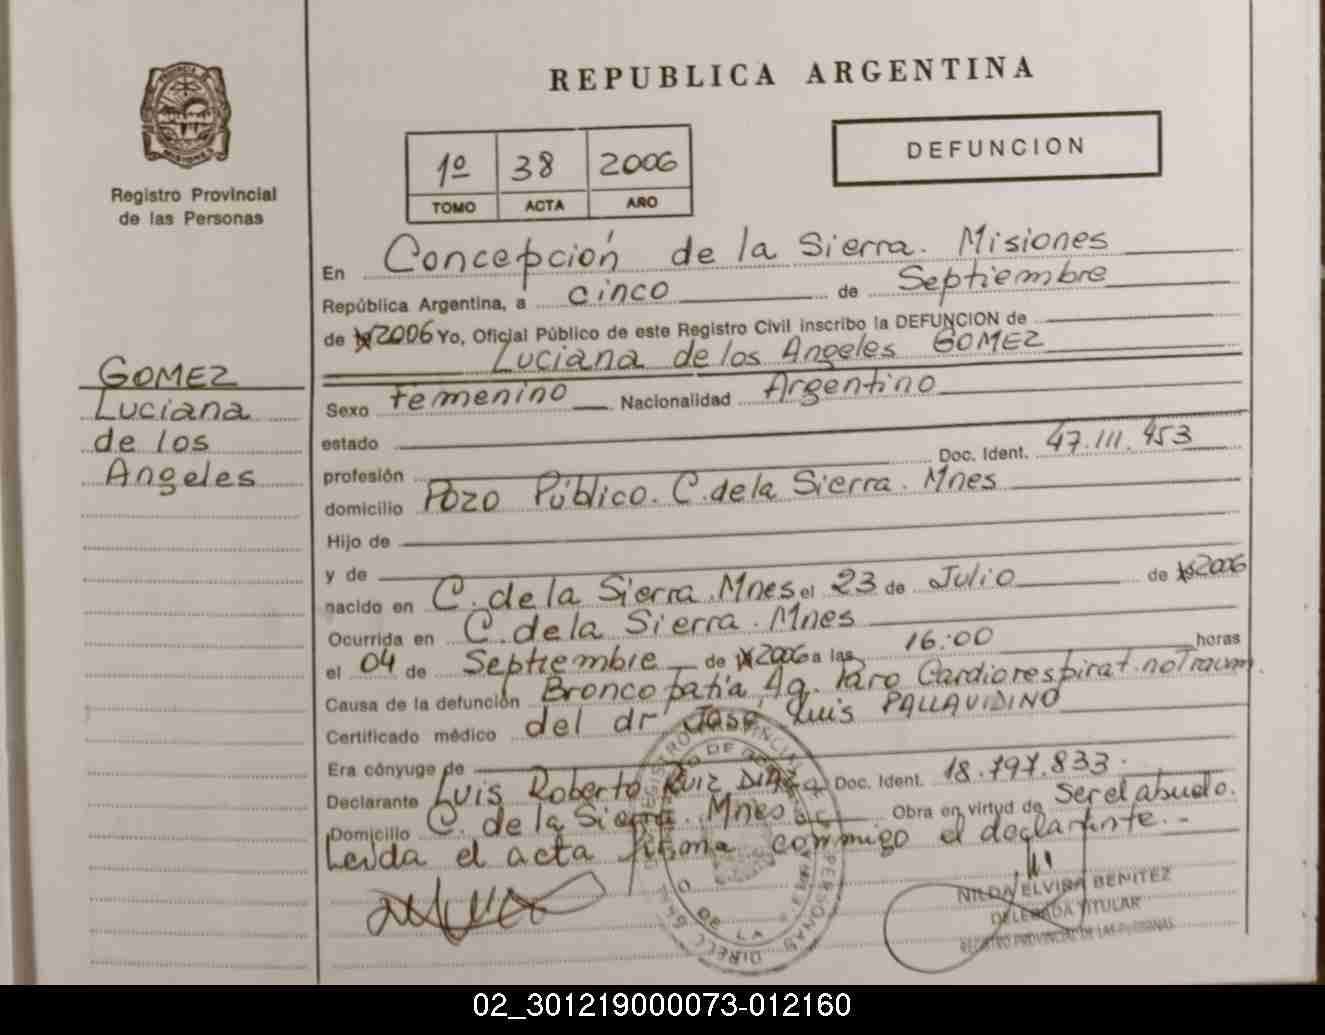 REPUBLICA ARGENTINA
PROVINCIA DE
MISIONES
Registro Provincial
de las Personas
1º 38 2006
TOMO ACTA AÑO
DEFUNCION
GOMEZ
Luciana
de los
Angeles
En Concepción de la Sierra. Misiones
República Argentina, a cinco de Septiembre
de 2006 Yo, Oficial Público de este Registro Civil inscribo la DEFUNCION de
Luciana de los Angeles GOMEZ
Sexo femenino Nacionalidad Argentino
estado
profesión Doc. Ident. 47.111.453
domicilio Pozo Público. C. de la Sierra. Mnes
Hijo de
y de
nacido en C. de la Sierra. Mnes el 23 de Julio de 2006
Ocurrida en C. de la Sierra. Mnes
el 04 de Septiembre de 2006 a las 16:00 horas
Causa de la defunción Broncopatía Ag. Paro Cardiorespirat. no Traum.
Certificado médico del dr José Luis PALLAVIDINO
Era cónyuge de
Declarante Luis Roberto Ruiz DIAZ Doc. Ident. 18.797.833.
Domicilio C. de la Sierra. Mnes Obra en virtud de ser el abuelo.
Leída el acta firma conmigo el declarante.-
NILDA ELVIRA BENITEZ
DELEGADA TITULAR
REGISTRO PROVINCIAL DE LAS PERSONAS
02_301219000073-012160